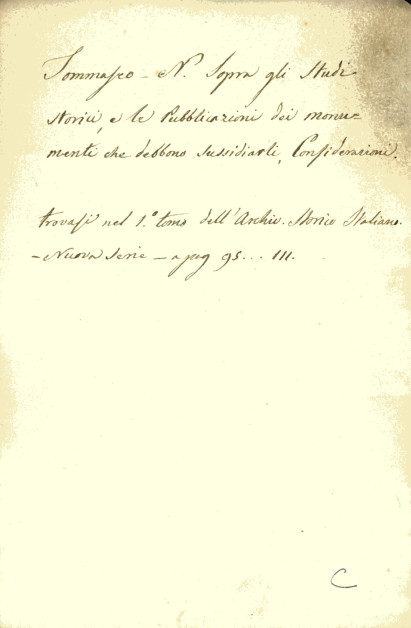 Tommaseo - N. Sopra gli Studi
storici, e le Pubblicazioni dei monu=
menti che debbono sussidiarli, Considerazioni.
trovasi nel 1.° tomo dell'Archiv. Storico Italiano.
- Nuova Serie - a pag 95... 111.
C